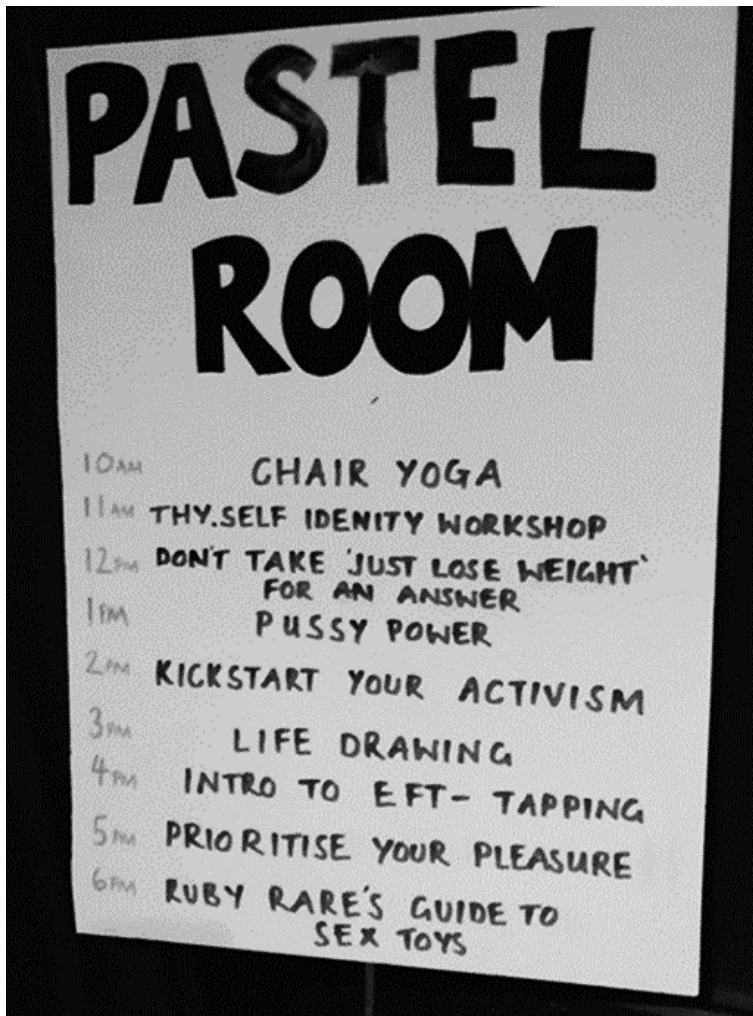 PASTEL
ROOM
10AM CHAIR YOGA
11AM THY.SELF IDENITY WORKSHOP
12PM DON'T TAKE 'JUST LOSE WEIGHT'
FOR AN ANSWER
1PM PUSSY POWER
2PM KICKSTART YOUR ACTIVISM
3PM LIFE DRAWING
4PM INTRO TO EFT- TAPPING
5PM PRIORITISE YOUR PLEASURE
6PM RUBY RARE'S GUIDE TO
SEX TOYS